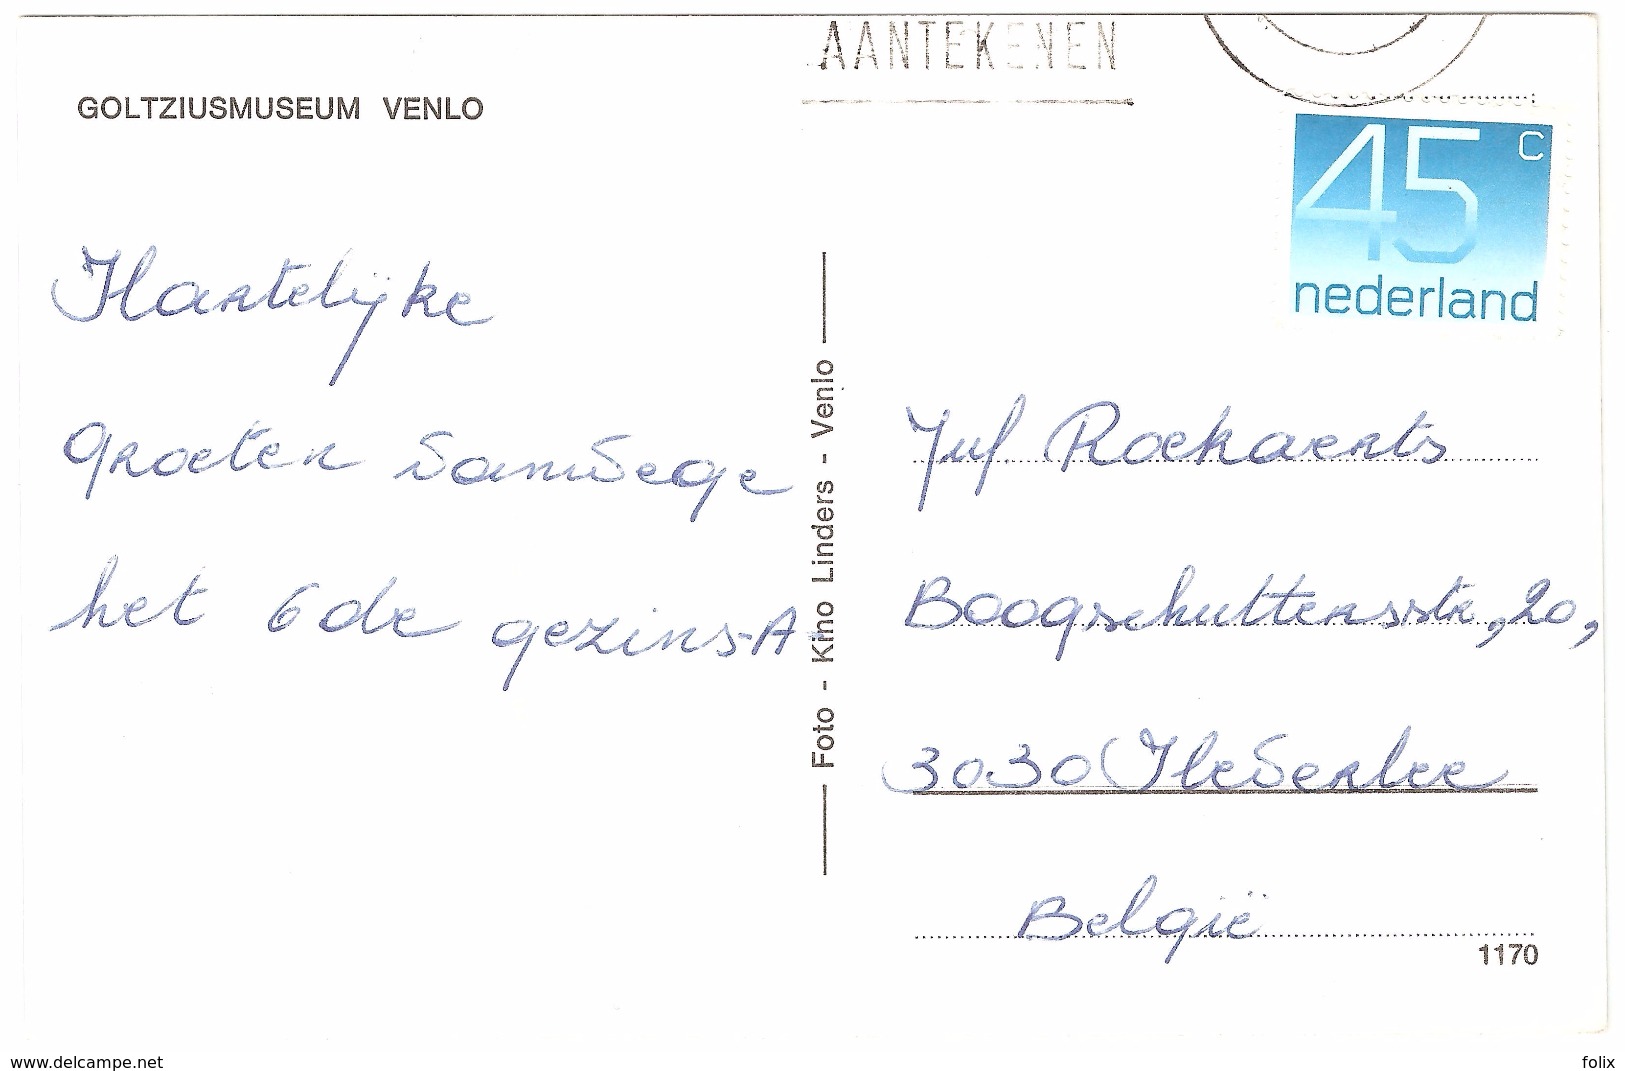 AANTEKENEN
GOLTZIUSMUSEUM VENLO
45 c
nederland
Hartelijke
groeten vanwege
het 6de gezins-A
Foto - Kino Linders - Venlo
Juf. Roekaerts
Boogschuttersstr, 20,
3030 Heverlee
België
1170
www.delcampe.net
folix